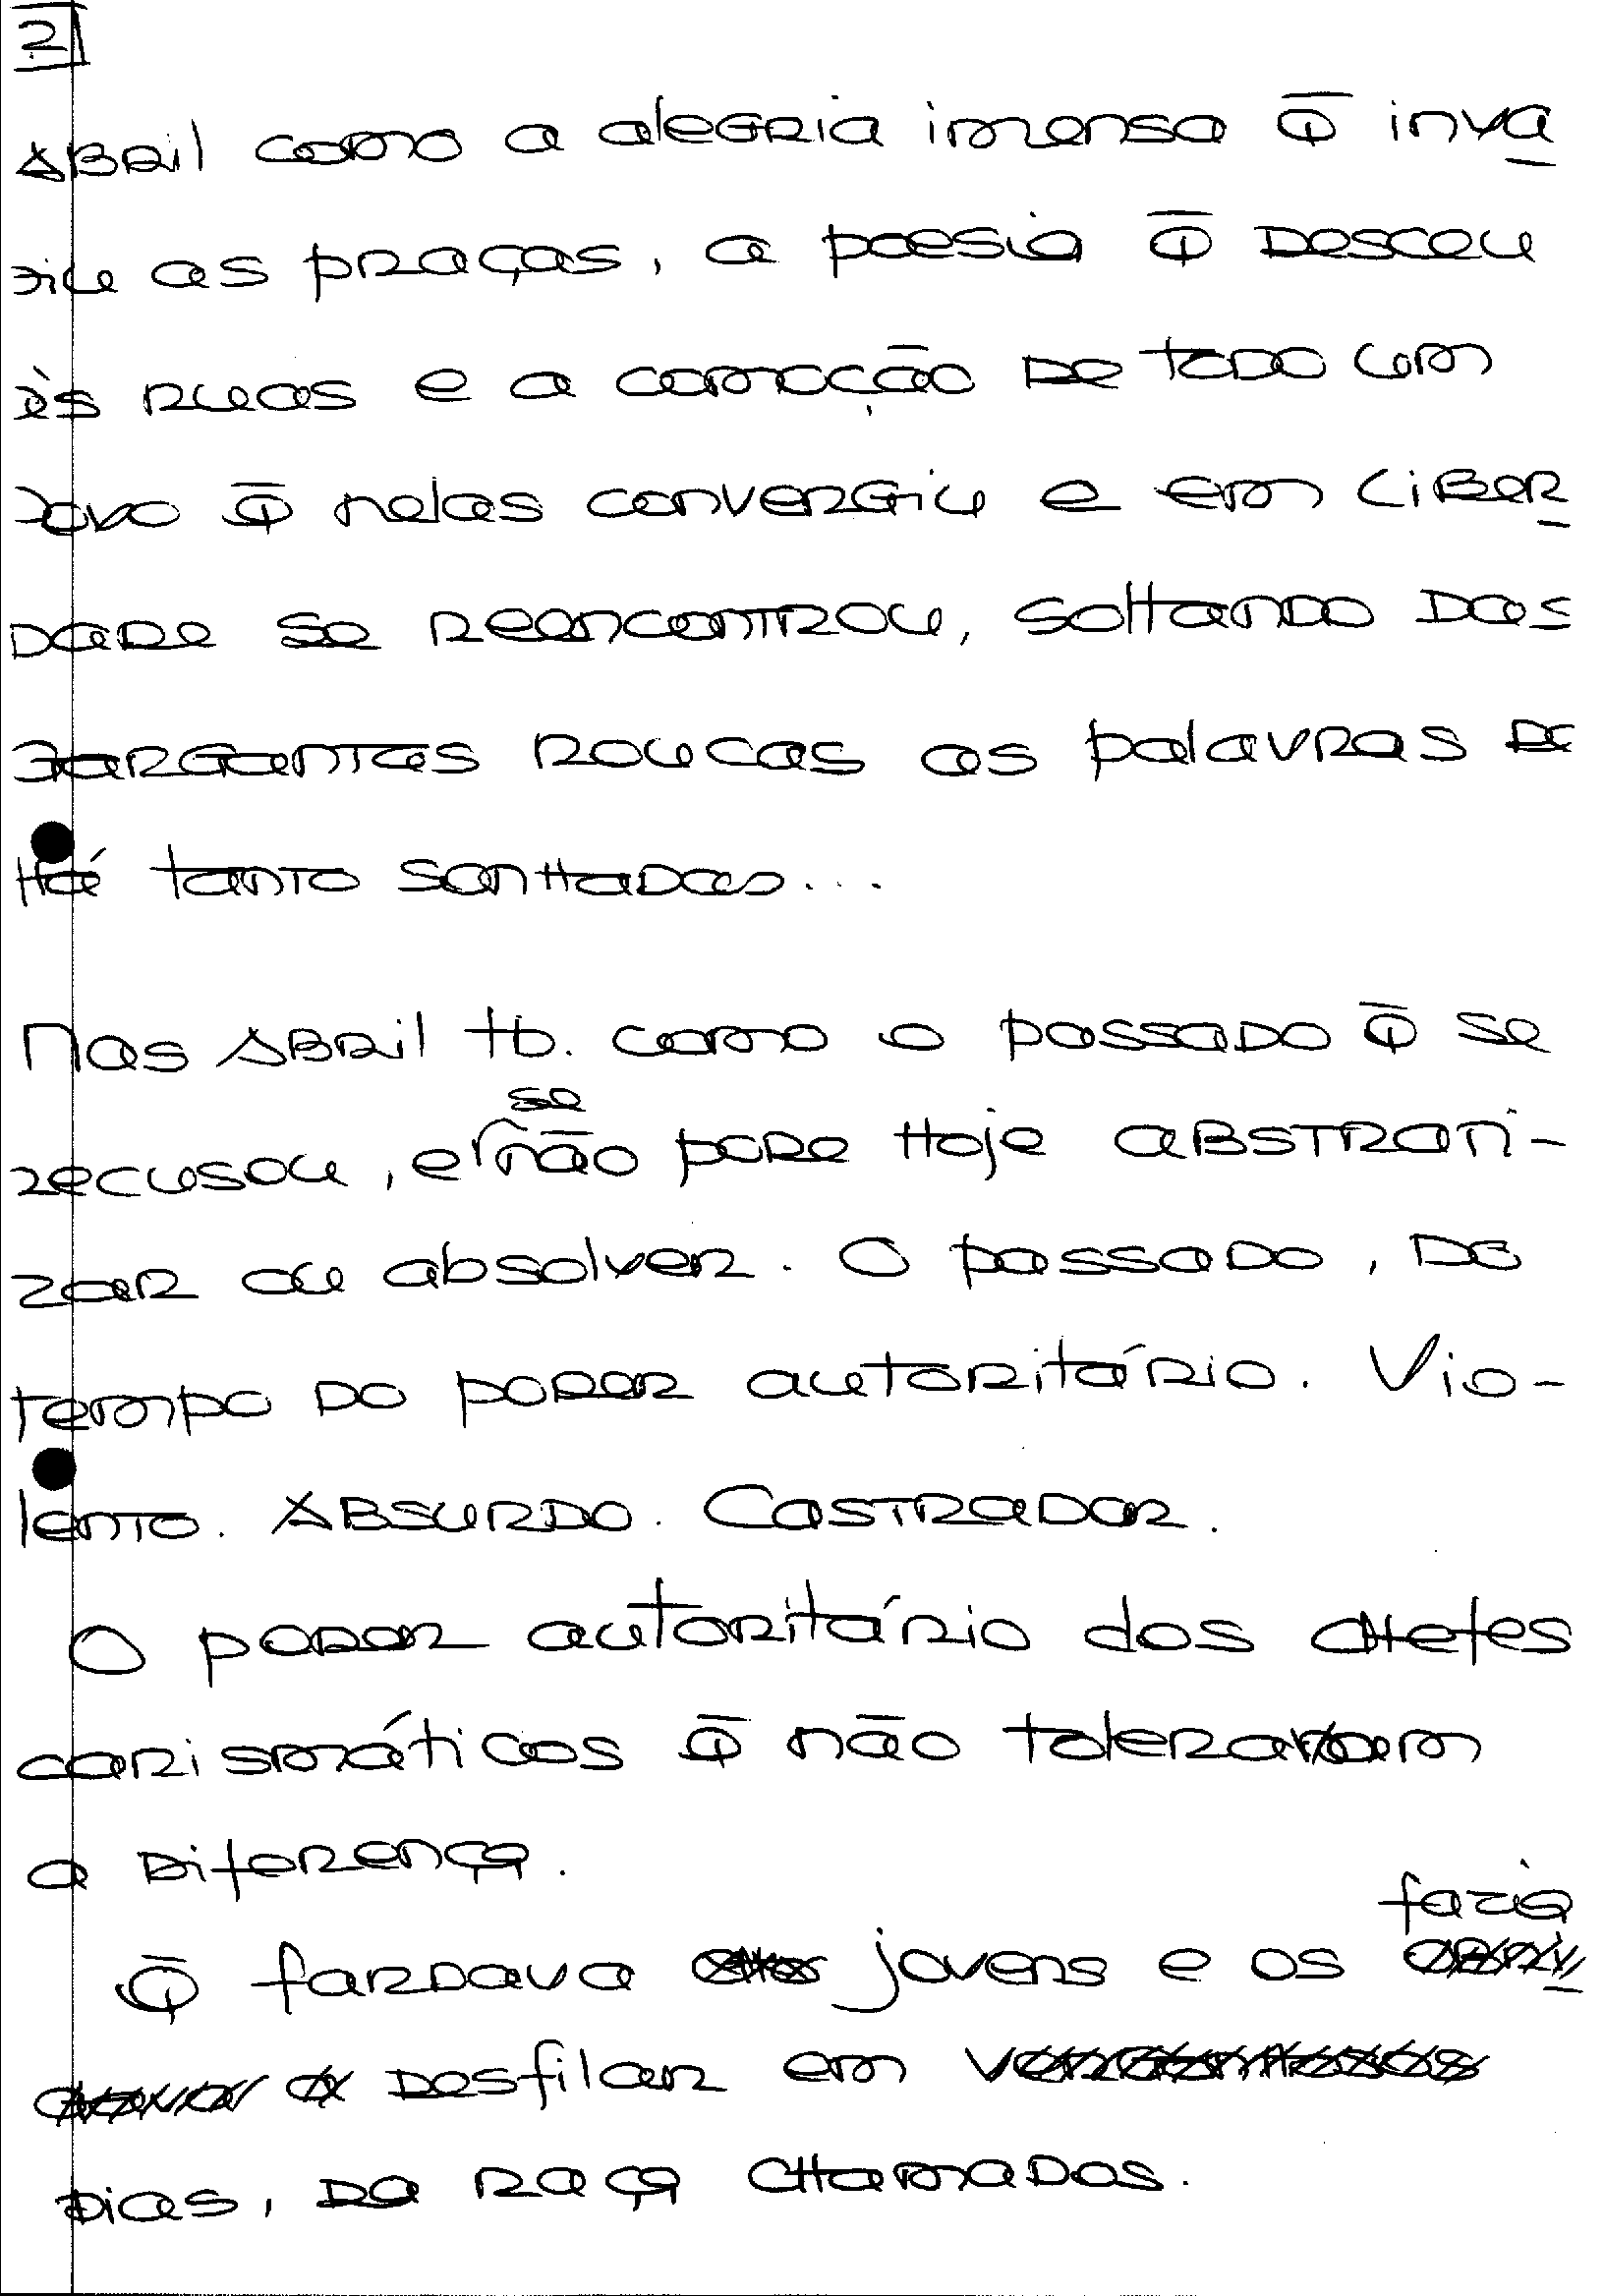 2
ABRil como a alegria imensa q̄ inva
diu as praças, a poesia q̄ desceu
às ruas e a comoção de todo um
povo q̄ nelas convergiu e em liber
dade se reencontrou, soltando das
gargantas roucas as palavras de
há tanto sonhadas...
Mas Abril tb. como o passado q̄ se
se
recusou, e não pode hoje abstrati-
zar ou absolver. O passado, do
tempo do poder autoritário. Vio-
lento. Absurdo. Castrador.
O poder autoritário dos chefes
carismáticos q̄ não toleravam
a diferença.
fazia
Q̄ fardava jovens e os
desfilar em
dias, da raça chamados.